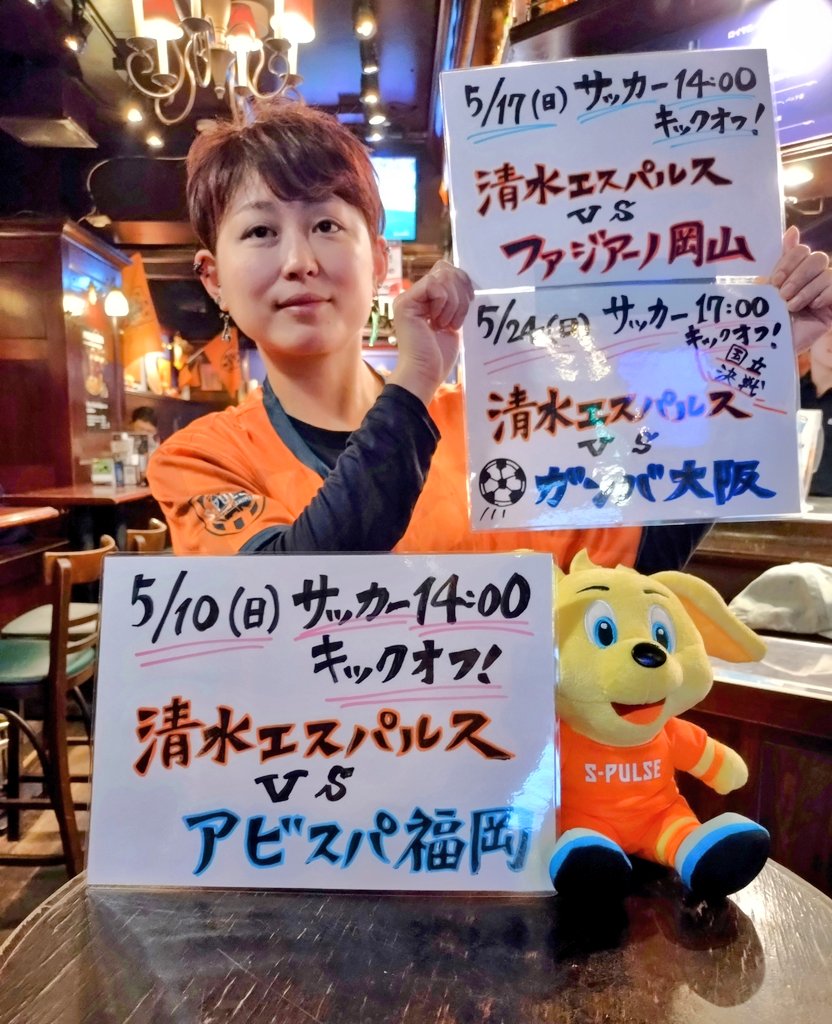 5/17(日) サッカー 14:00
キックオフ!
清水エスパルス
VS
ファジアーノ岡山
5/24(日) サッカー 17:00
キックオフ!
国立
決戦
清水エスパルス
VS
ガンバ大阪
5/10(日) サッカー 14:00
キックオフ!
清水エスパルス
VS
アビスパ福岡
S-PULSE